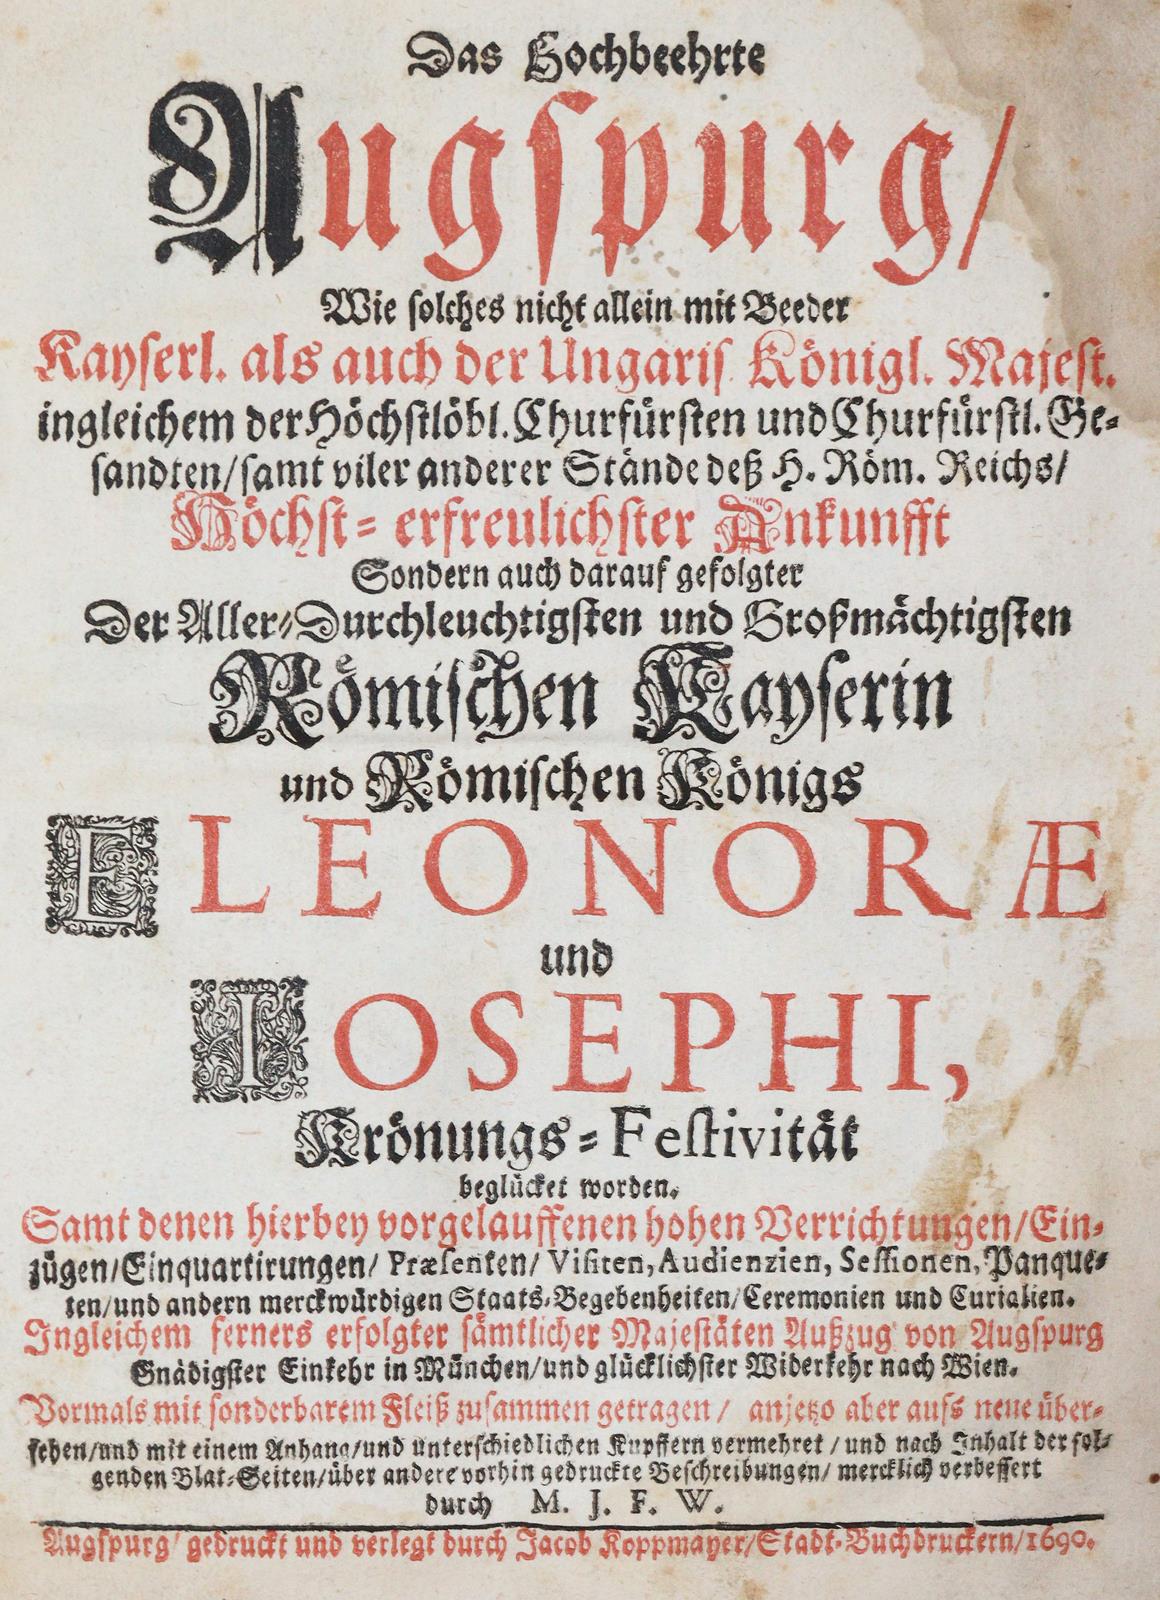 Das Hochbeehrte
Augſpurg/
Wie ſolches nicht allein mit Beeder
Kayſerl. als auch der Ungariſ. Königl. Majeſt.
ingleichem der Höchſtlöbl. Churfürſten und Churfürſtl. Ge-
ſandten/ſamt viler anderer Stände deß H. Röm. Reichs/
Höchſt-erfreulichſter Ankunfft
Sondern auch darauf gefolgter
Der Aller-Durchleuchtigſten und Großmächtigſten
Römiſchen Kayſerin
und Römiſchen Königs
ELEONORÆ
und
IOSEPHI,
Krönungs-Feſtivität
beglücket worden.
Samt denen hierbey vorgelauffenen hohen Verrichtungen/Ein-
zügen/Einquartirungen/ Præſenten/ Viſiten, Audienzien, Seſſionen, Panque-
ten/und andern merckwürdigen Staats-Begebenheiten/Ceremonien und Curialien.
Ingleichem ferners erfolgter ſämtlicher Majeſtäten Außzug von Augſpurg
Gnädigſter Einkehr in München/und glücklichſter Widerkehr nach Wien.
Vormals mit ſonderbarem Fleiß zuſammen getragen/ anjetzo aber aufs neue über-
ſehen/und mit einem Anhang/und unterſchiedlichen Kupffern vermehret/und nach Inhalt der fol-
genden Blat-Seiten/über andere vorhin gedruckte Beſchreibungen/ mercklich verbeſſert
durch M. J. F. W.
Augſpurg/ gedruckt und verlegt durch Jacob Koppmayer/Stadt-Buchdruckern/1690.